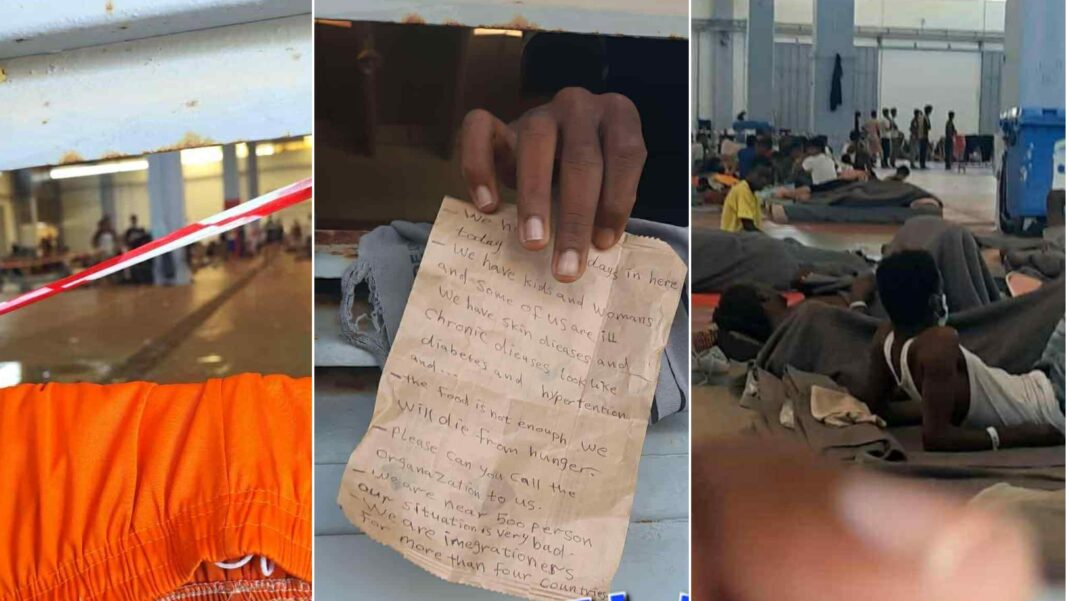 - We
today days in here
- We have kids and womans
and some of us are ill
We have skin dieases and
chronic dieases look like
diabetes and hypertention
and...
- the food is not enough we
will die from hunger.
- please can you call the
organazation to us.
- We are near 500 person
our situation is very bad.
- We are imegrationers
For more than four countries